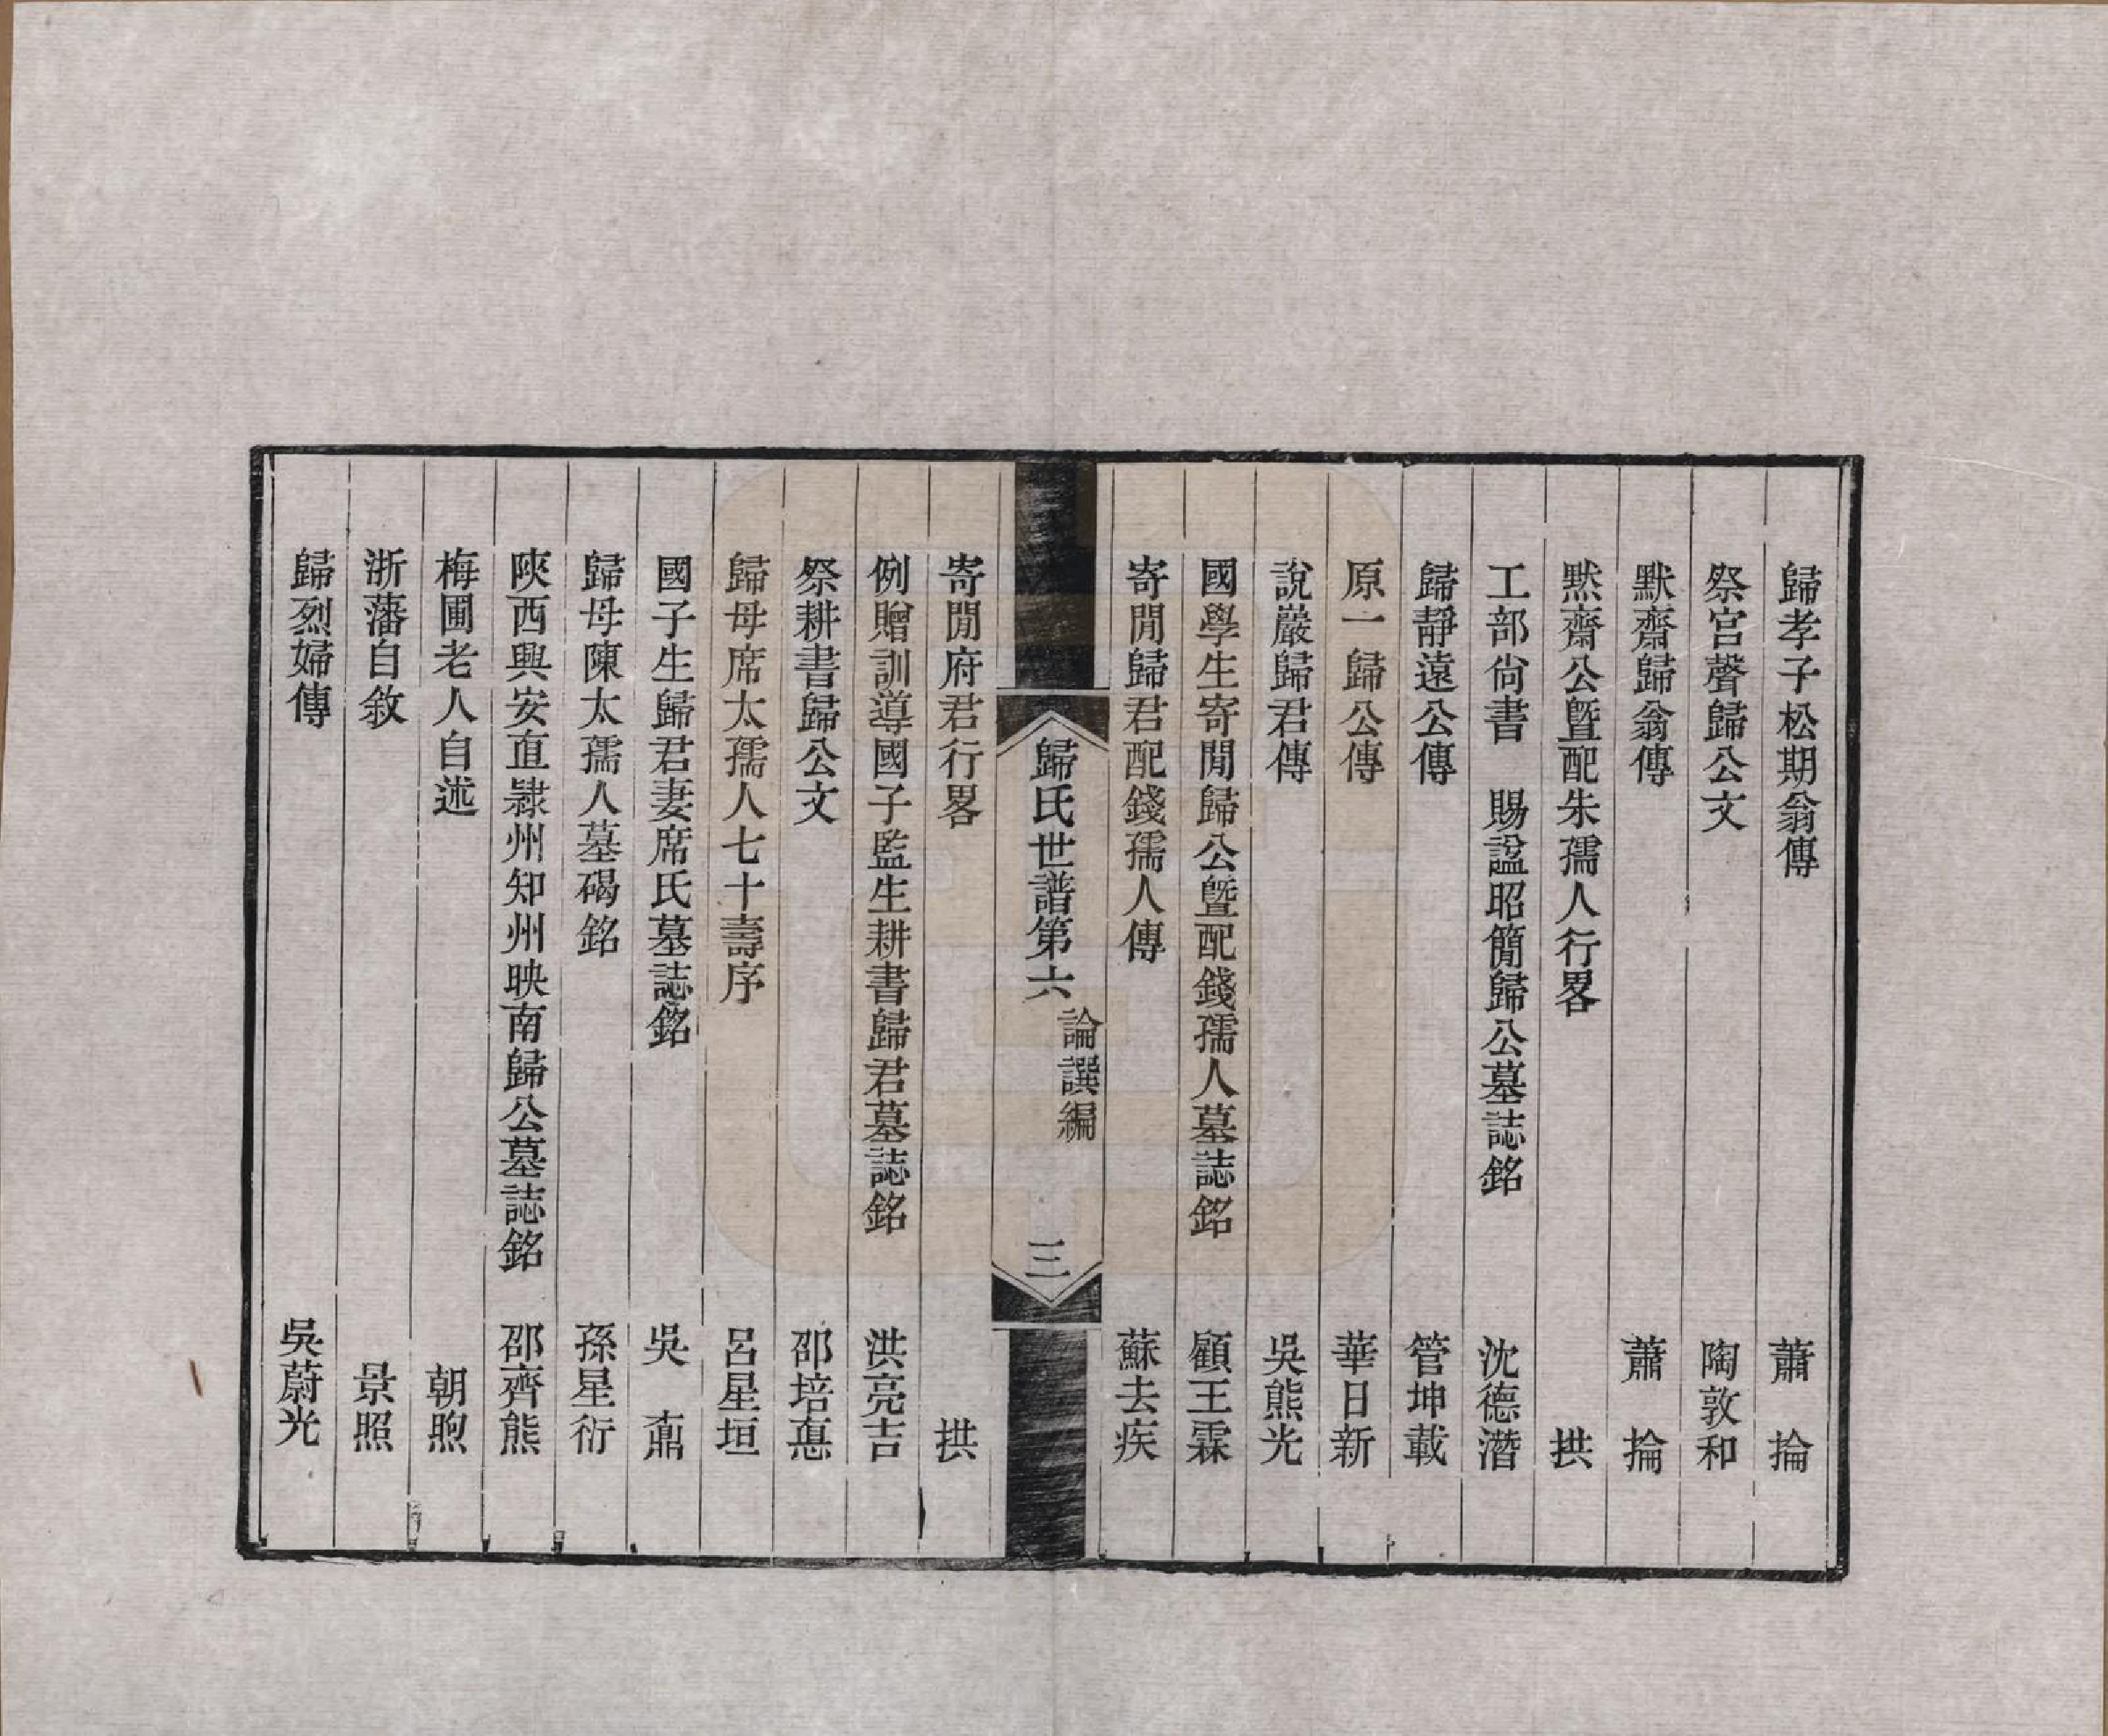 歸孝子松期翁傳 蕭掄
祭宮聲歸公文 陶敦和
默齋歸翁傳 蕭掄
黙齋公曁配朱孺人行畧 拱
工部尙書 賜諡昭簡歸公墓誌銘 沈德潛
歸靜遠公傳 管坤載
原一歸公傳 華日新
說巖歸君傳 吳熊光
國學生寄閒歸公曁配錢孺人墓誌銘 顧王霖
寄閒歸君配錢孺人傳 蘇去疾
歸氏世譜第六 論譔編 三
寄閒府君行畧 拱
例贈訓導國子監生耕書歸君墓誌銘 洪亮吉
祭耕書歸公文 邵培惪
歸母席太孺人七十壽序 呂星垣
國子生歸君妻席氏墓誌銘 吳鼒
歸母陳太孺人墓碣銘 孫星衍
陝西興安直隸州知州映南歸公墓誌銘 邵齊熊
梅圃老人自述 朝煦
浙藩自敘 景照
歸烈婦傳 吳蔚光